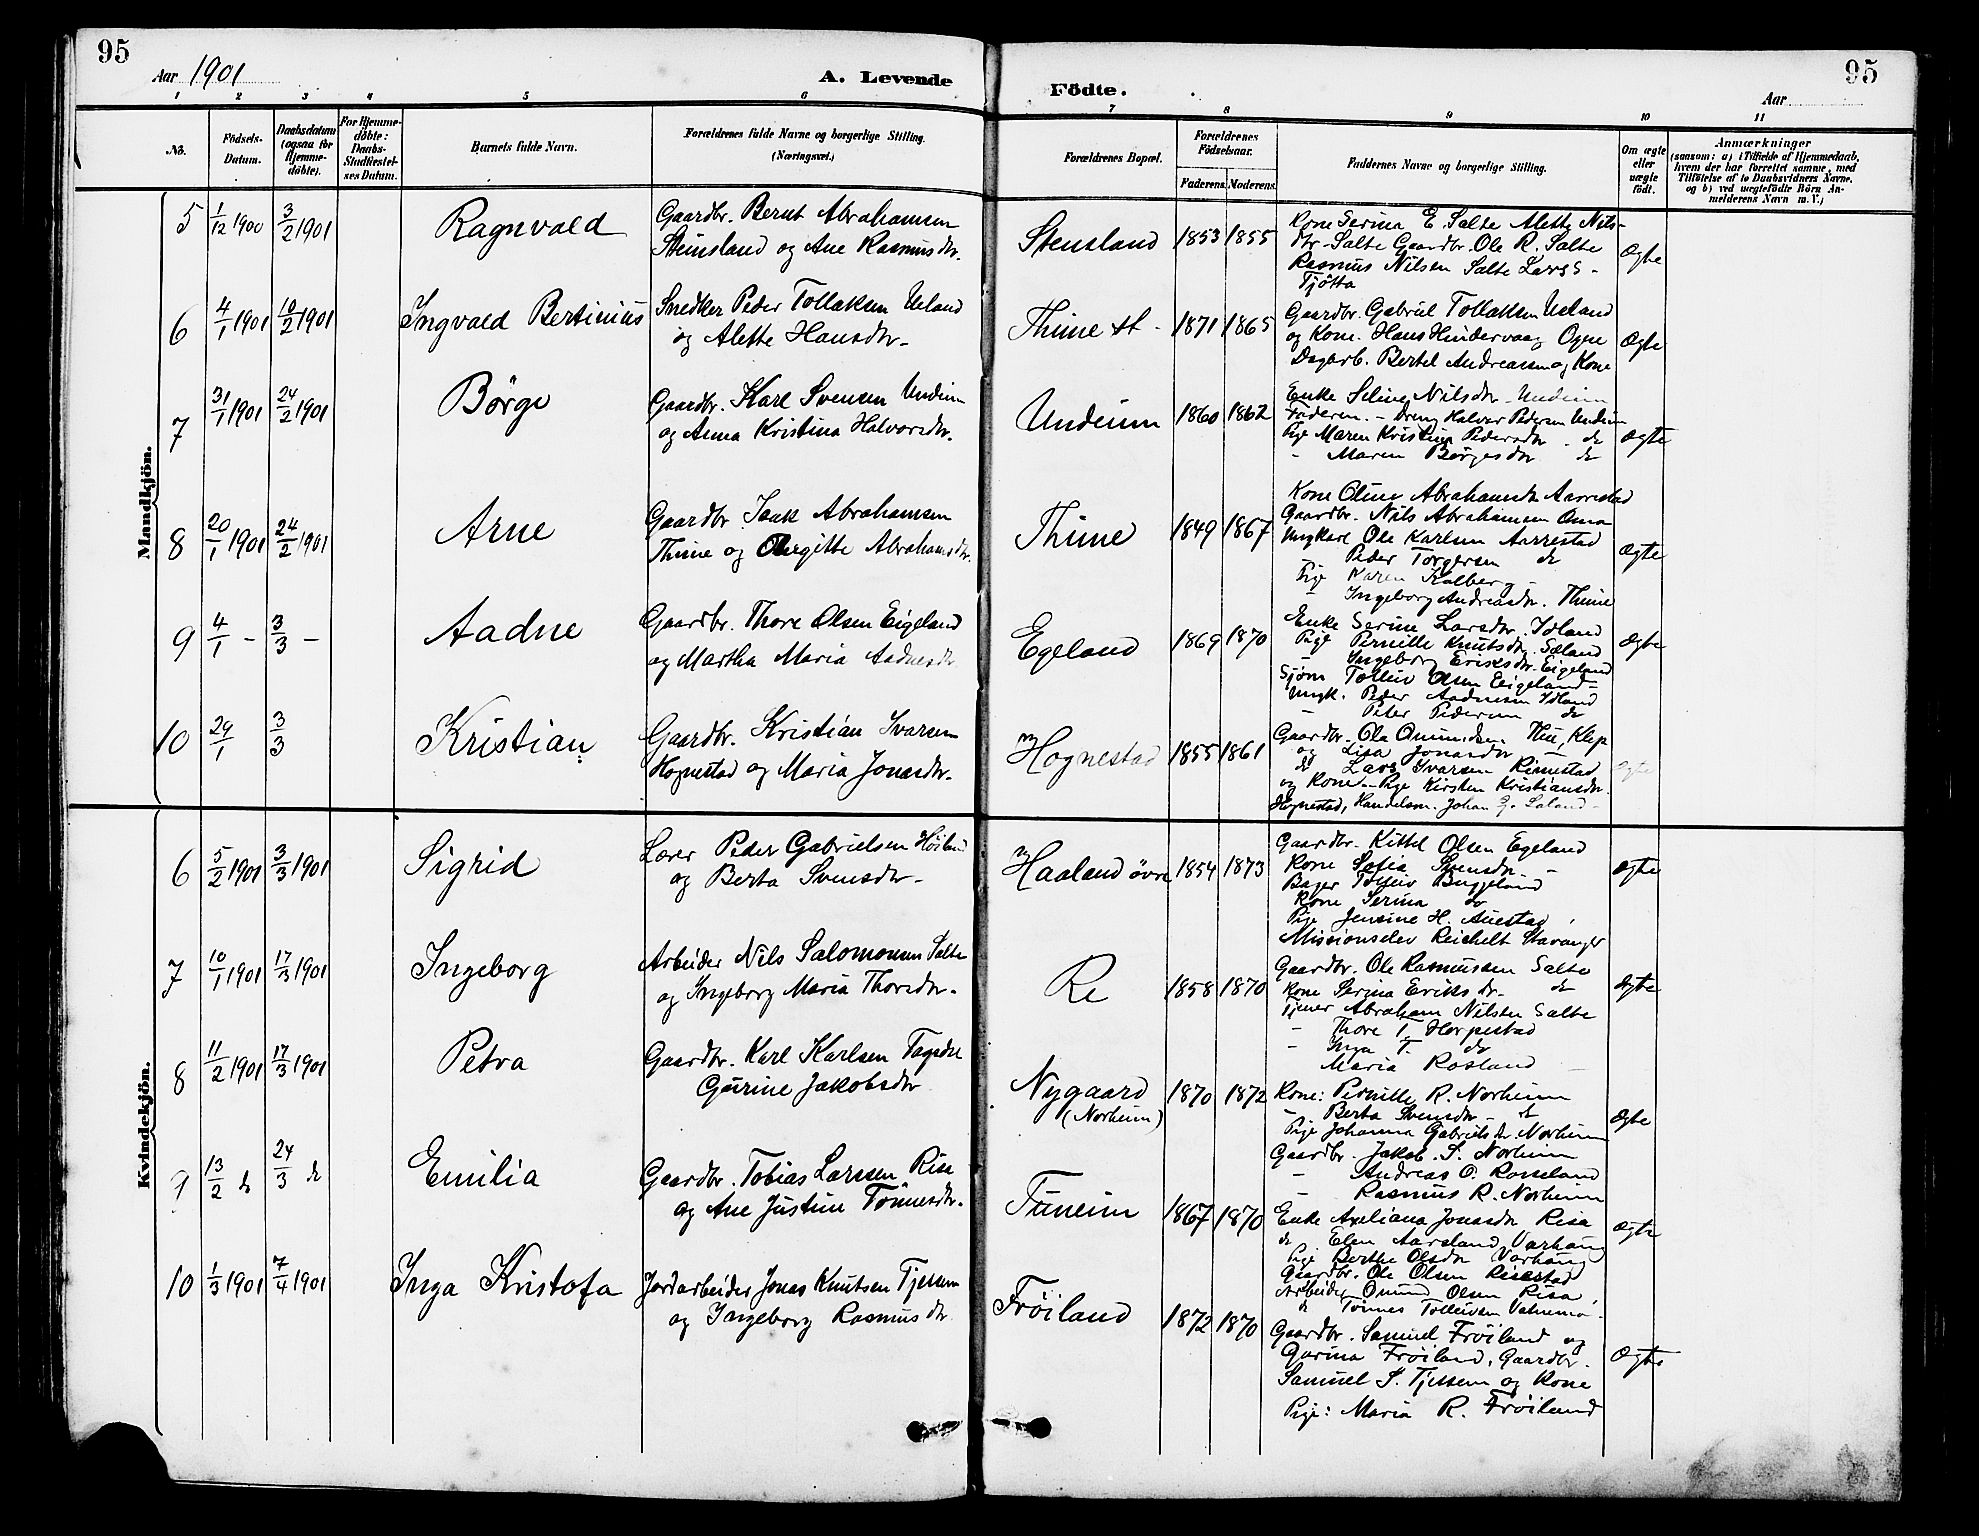 95
Aar 1901
A. Levende
Födte.
Aar
95
1 2 3 4 5 6 7 8 9 10 11
No.
Födsels-Datum.
Daabsdatum (ogsaa for Hjemmedöbte).
For Hjemmedöbte: Daabs-Stadfæstelses Datum.
Barnets fulde Navn.
Forældrenes fulde Navne og borgerlige Stilling.
(Næringsvei.)
Forældrenes Bopæl.
Forældrenes Födselsaar.
Faderens. Moderens.
Faddernes Navne og borgerlige Stilling.
Om ægte eller uægte födt.
Anmærkninger
(saasom: a) i Tilfælde af Hjemmedaab, hvem der har forrettet samme, med Tilföielse af to Daabsvidners Navne, og b) ved uægtefödte Börn Anmelderens Navn m. V.)
Mandkjön.
5 1/12 1900 3/2 1901 Ragnvald
Gaardbr. Bernt Abrahamsen
Steinsland og Ane Rasmusdtr.
Stensland 1853 1855
Kone Serina E. Salte Alette Nils-
dtr Salte Gaardbr. Ole R. Salte
Rasmus Nilsen Salte Lars S-
Tjötta
Ægte
6 4/1 1901 10/2 1901 Ingvald Bertinius
Snedker Peder Tollaksen Ueland
og Alette Hansdtr-
Thime st- 1871 1865
Gaardbr. Gabriel Tollaksen Ueland
og Kone. Hans Hindervaag Ogne
Dagarb. Bertel Andreassen og Kone
Ægte
7 31/1 1901 24/2 1901 Börge
Gaardbr. Karl Svensen Undeim
og Anna Kristina Halvorsdtr.
Undeim 1860 1862
Enke Seline Nilsdtr. Undeim
Faderen. - Dreng Halvor Pedersen Undeim
Pige Maren Kristine Pedersdtr - do
- Maren Börgesdtr do
Ægte
8 20/1 1901 24/2 1901 Arne
Gaardbr. Isak Abrahamsen
Thime og Abrahamsdtr.
Thime 1849 1867
Kone Oline Abrahamsdtr Aarrestad
Gaardbr. Nils Abrahamsen Oma
Ungkarl Ole Karlsen Aarrestad
- Peder Torgersen do
Pige Karen Kalberg -
- Ingeborg Andreasdtr. Thime
Ægte
9 4/1 - 3/3 - Aadne
Gaardbr. Thore Olsen Eigeland
og Martha Maria Aadnesdtr
Egeland 1869 1870
Enke Serine Larsdtr. Idland
Pige Pernille Knutsdtr. Sæland
- Ingeborg Eriksdtr. Eigeland
Sjöm Tolleiv Olsen Eigeland-
Ungk. Peder Aadnesen Idland
- Peter Pedersen do
Ægte
10 24/1 3/3 Kristian
Gaardbr. Kristian Ivarsen
Hognestad og Maria Jonasdtr.
Hognestad 1855 1861
Gaardbr. Ola Omundsen Thu, Klep
og Lisa Jonasdtr -
do Lars Ivarsen Rimestad
og Kone - Pige Kirsten Kristiansdtr.
Hognestad, Handelsm. Johan G. Saland-
Ægte
Kvindekjön.
6 5/2 1901 3/3 1901 Sigrid
Lærer Peder Gabrielsen Höiland
og Berta Svensdtr-
Haaland övre 1854 1873
Gaardbr. Kittel Olsen Egeland
Kone Sofia Svensdtr. -
Bager Tolleiv Buggeland
Kone Serina do
Pige Jensine H. Auestad
Missionselev Reichelt Stavanger
Ægte
7 10/1 1901 17/3 1901 Ingeborg
Arbeider Nils Salomonsen Salte
og Ingeborg Maria Thorsdtr.
Re 1858 1870
Gaardbr. Ole Rasmussen Salte
Kone Serina Eriksdtr- do
Tjener Abraham Nilsen Salte
- Thore T. Herpestad
- Inga T. do
Maria Rosland
Ægte
8 11/2 1901 17/3 1901 Petra
Gaardbr. Karl Karlsen
Gurine Jakobsdtr
Nygaard
(Norheim) 1870 1872
Kone: Pernille R. Norheim
- Berta Svensdtr - do
Pige Johanna Gabrielsdtr. Norheim
Gaardbr. Jakob S. Norheim
- Andreas O. Rosseland
- Rasmus R. Norheim
Ægte
9 13/2 do 24/3 do Emilia
Gaardbr. Tobias Larssen Risa
og Ane Justine Tönnesdtr.
Tuneim 1867 1870
Enke Axeliana Jonasdtr Risa
do Elen Aarsland Varhaug
Pige Berthe Olsdtr Varhaug
Gaardbr. Ole Olsen Risestad
Arbeider Omund Olsen Risa
do Tönnes Tolleivsen Vatnemo-
Ægte
10 1/3 1901 7/4 1901 Inga Kristofa
Jordarbeider Jonas Knutsen Tjessem
og Ingeborg Rasmusdtr
Fröiland 1872 1870
Gaardbr. Samuel Fröiland og
Gurina Fröiland, Gaardbr.
Samuel S. Tjessem og Kone
Pige: Maria R. Fröiland
Ægte